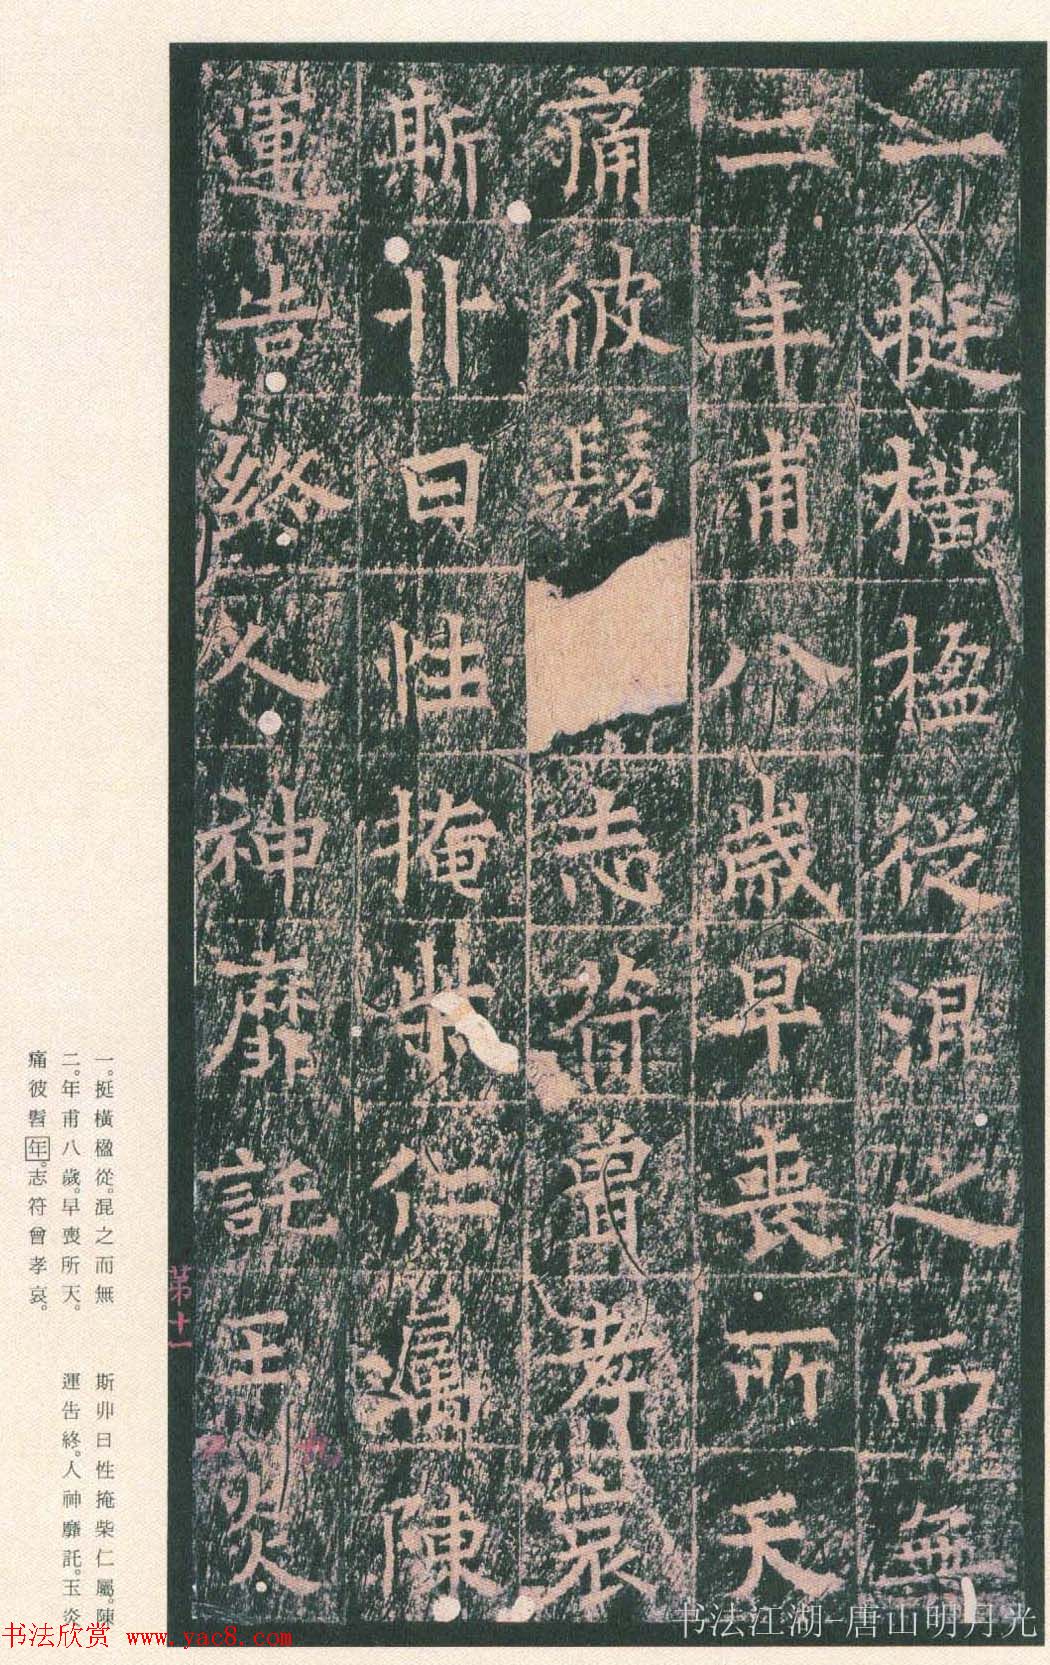 一挺橫楹從混之而無
二年甫八歲早喪所天
痛彼髫志符曾孝哀
斯卝日性掩柴仁屬陳
運告終人神靡託玉炎
第十一
一。挺橫楹從。混之而無
二。年甫八歲。早喪所天。
痛彼髫年。志符曾孝哀。
斯丱日性掩柴仁屬。陳
運告終。人神靡託。玉炎
书法欣赏 www.yac8.com
书法江湖-唐山明月光